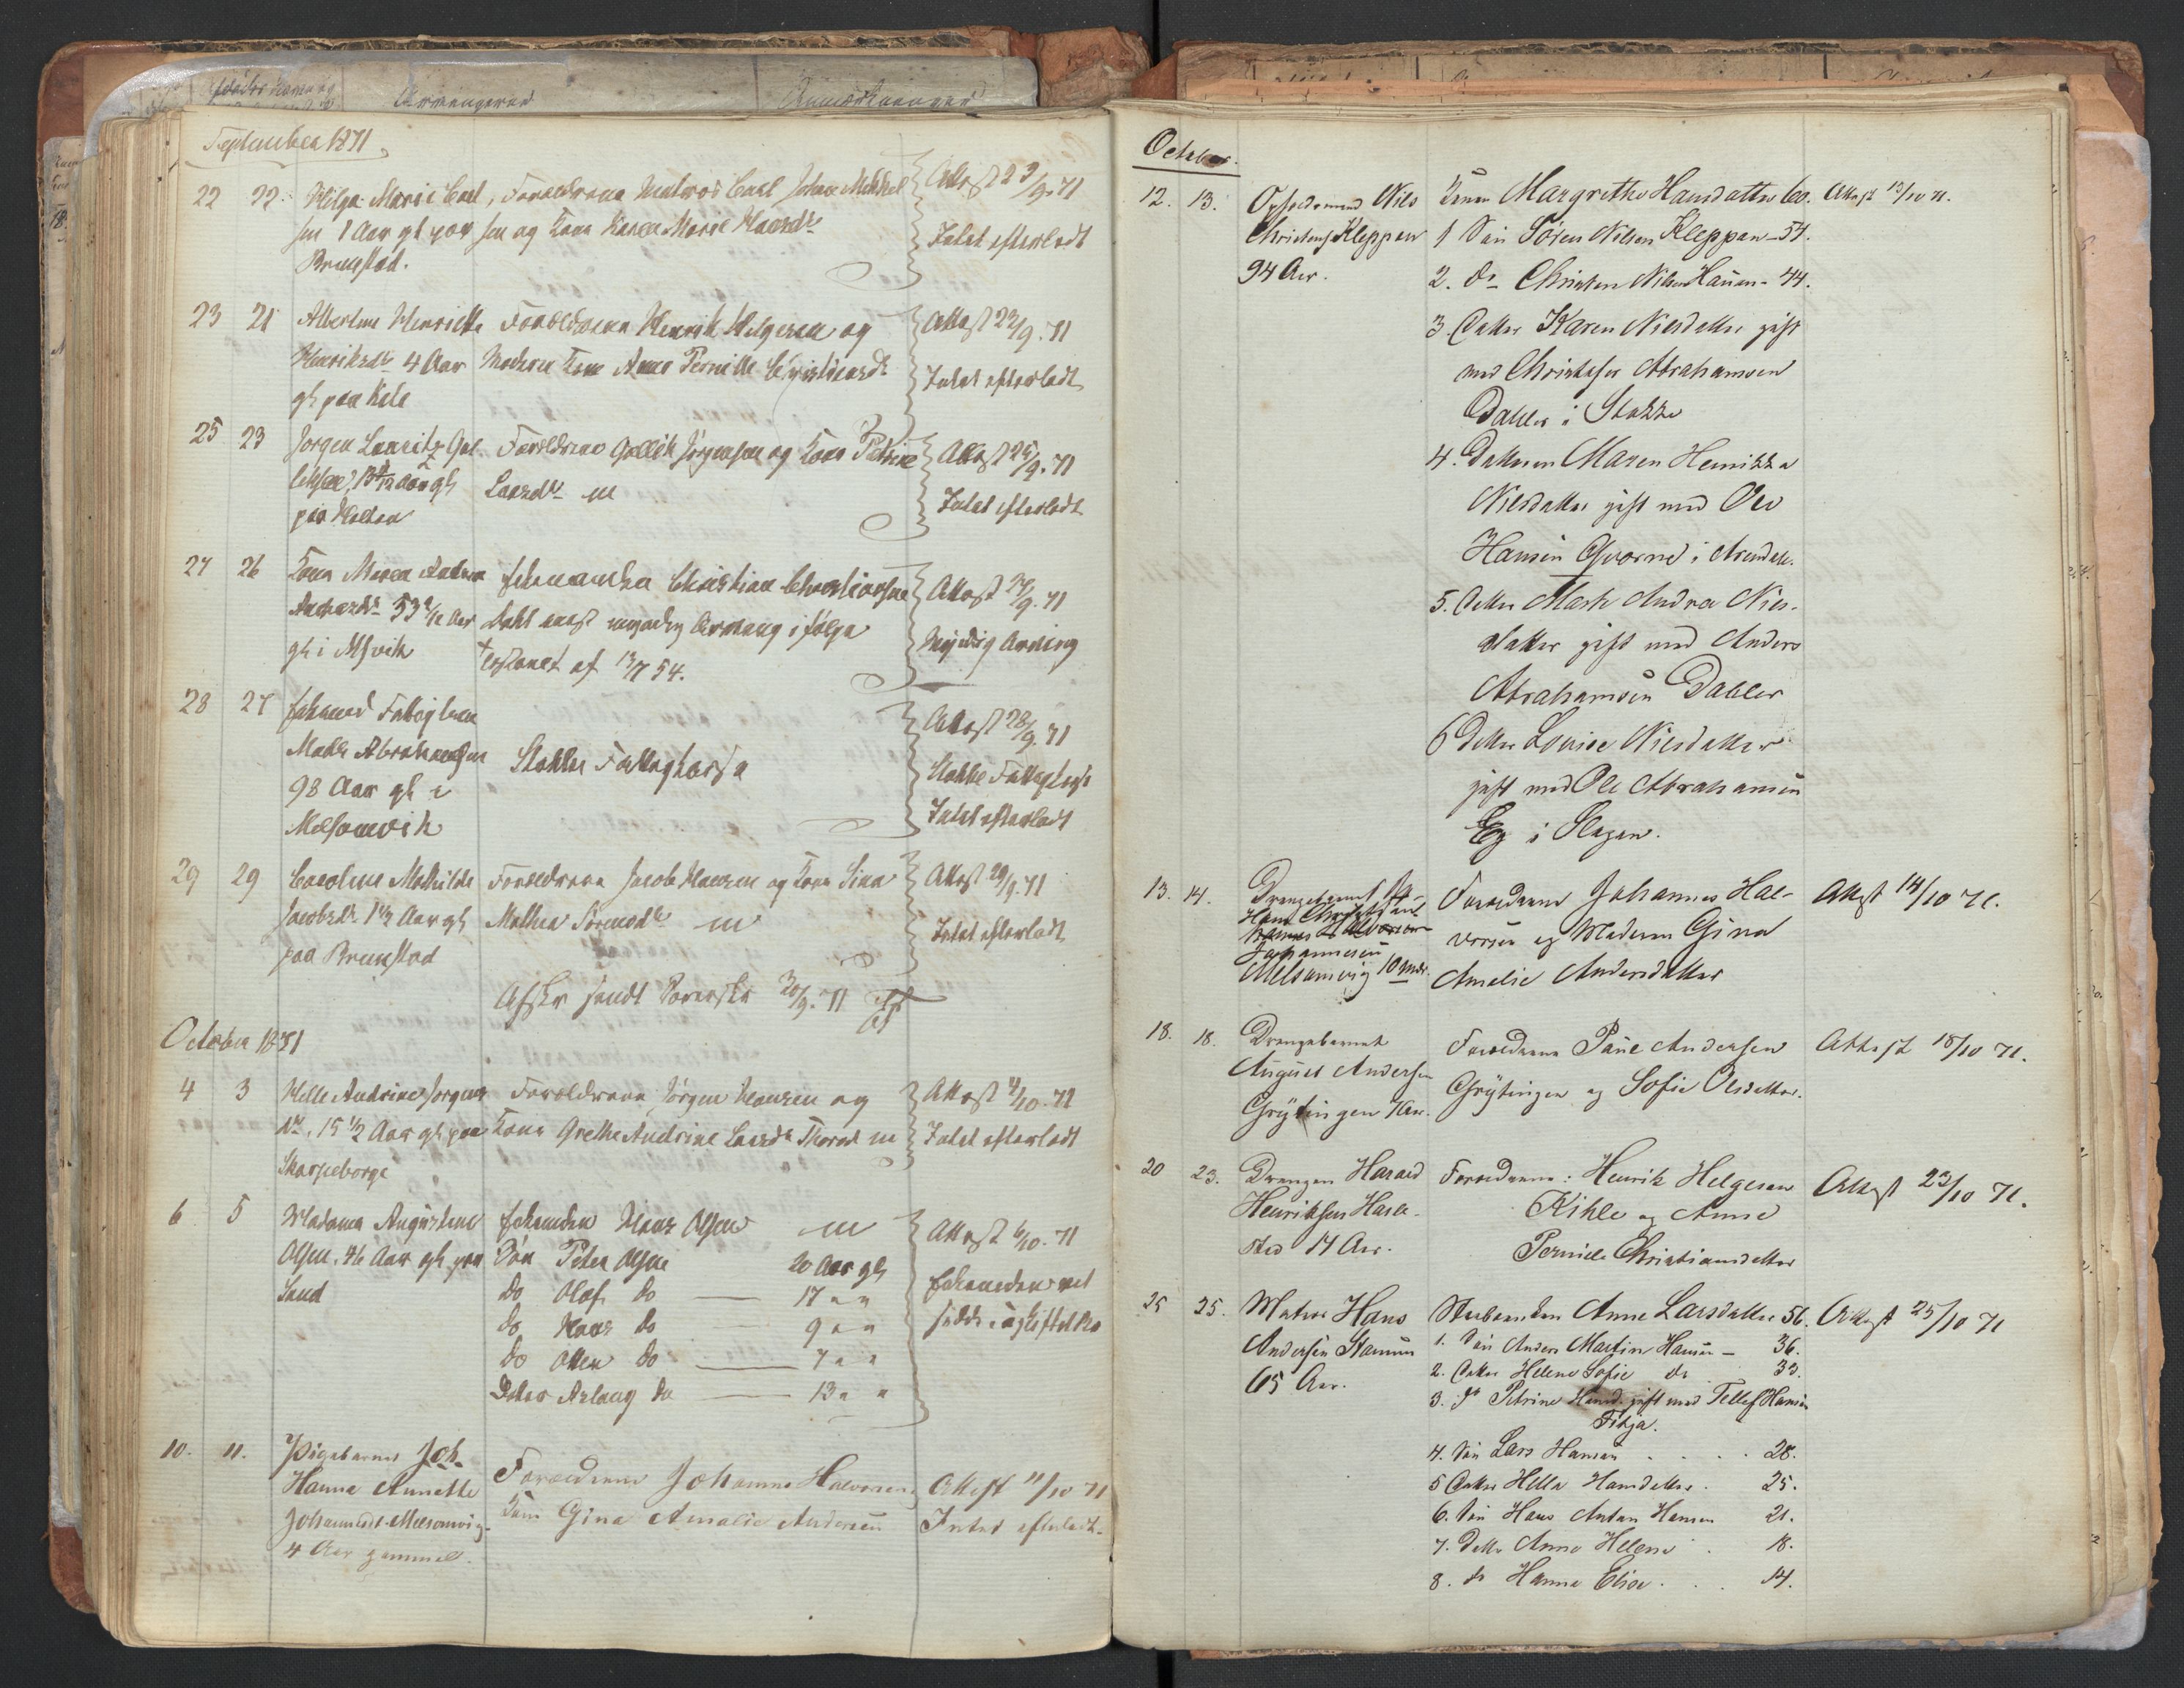 September 1871
22 22. Helga Marie Carl, Forældrene Matros Carl Johan Mikkel Attest 23/9. 71
sen 1 Aar gl paa sen og Kone Karen Marie Hansd. Intet efterladt
Brunstad.
23 21 Albertine Henriette Forældrene Henrik Helgesen og Attest 23/9. 71
Henriksd. 4 Aar Moderen Kone Anne Pernille Christiansd.
gl paa Kile Intet efterladt
25 23 Jørgen Lauritz Gul Forældrene Gullik Jørgensen og Kone Petrine Attest 25/9. 71
liksen, Aar gl Larsd. Intet efterladt
paa
27 26 Kone Maren Andrea Christian Christiansen Attest 27/9. 71
53 Aar Arving ifølge Myndig Arving
gl i af 13/7 54.
28 27 Fattiglem
Mads Abrahamsen Stokke Fattigkasse Attest 28/9. 71
98 Aar gl i Stokke Fattigkasse
Melsomvik Intet efterladt
29 29 Caroline Mathilde Forældrene Jacob Hansen og Kone Sina Attest 29/9. 71
Jacobsd. 1 1/2 Aar gl Mathea Sørensd. Intet efterladt
paa Brunstad
Afskr sendt 30/9. 71
October 1871
4 3 Helle Andrine Jørgens Forældrene Jørgen Hansen og Attest 4/10. 71
dt., 15 1/2 Aar gl paa Kone Grethe Andrine Larsd. Intet efterladt
Skarpeborge
6 5 Madame Augustine Hans Olsen Attest 6/10. 71
Olsen, 46 Aar gl paa Søn Peter Olsen 20 Aar gl
Sund do Olaf do 17 " "
do Hans do 9 " "
do do 7 " "
Datter Aslaug do 13 " "
10. 11. Pigebarnet Joh-
Hanna Annette Forældrene Johannes Halvorsen Attest 11/10 71
Johannesdt Melsomvig Kone Gina Amalie Andersen Intet efterladt.
4 Aar gammel.
October.
12. 13. Opsidemand Nils Konen Margrethe Hansdatter 60. Attest 13/10 71.
Christens. Kleppan 1 Søn Søren Nilsen Kleppan - 54.
94 Aar. 2. do Christen Nilsen Haugan - 44.
3. Datter Karen Nilsdatter gift
med Christofer Abrahamsen
Dahler i Stokke
4. Datteren Maren Henrikka
Nilsdatter gift med Ole
Hansen i Arendal.
5. Datter Marte Andrea Nils-
datter gift med Anders
Abrahamsen Dahler
6 Datter Lovise Nilsdatter
gift med Ole Abrahamsen
Eg i Slagen.
13. 14. Drengebarnet Forældrene Johannes Hal- Attest 14/10 71.
Hans Christian vorsen og Moderen Gina
Johannesen Amalie Andersdatter
Melsomvig 10 Mdr.
18. 18. Drengebarnet Forældrene Paul Andersen Attest 18/10 71.
August Andersen Grytingen og Sofie Olsdatter.
Grytingen Aar.
20 23. Drengen Harald Forældrene: Henrik Helgesen Attest 23/10 71.
Henriksen Hasle- Kihle og Anne
sted 14 Aar. Pernille Christiansdatter
25 25. Matros Hans Anne Larsdatter 56. Attest 25/10 71
Andersen Stamnen 1. Søn Anders Martin Hansen - 36.
65 Aar. 2. Datter Helene Sofie do 33.
3. do Petrine Hansd. gift med Tellef Hansen
4. Søn Lars Hansen . . . 28.
5 Datter Hella Hansdatter. 25.
6. Søn Hans Anton Hansen 21.
7. Datter Anne Helene . 18.
8. do Hanna Elise . . . 14.